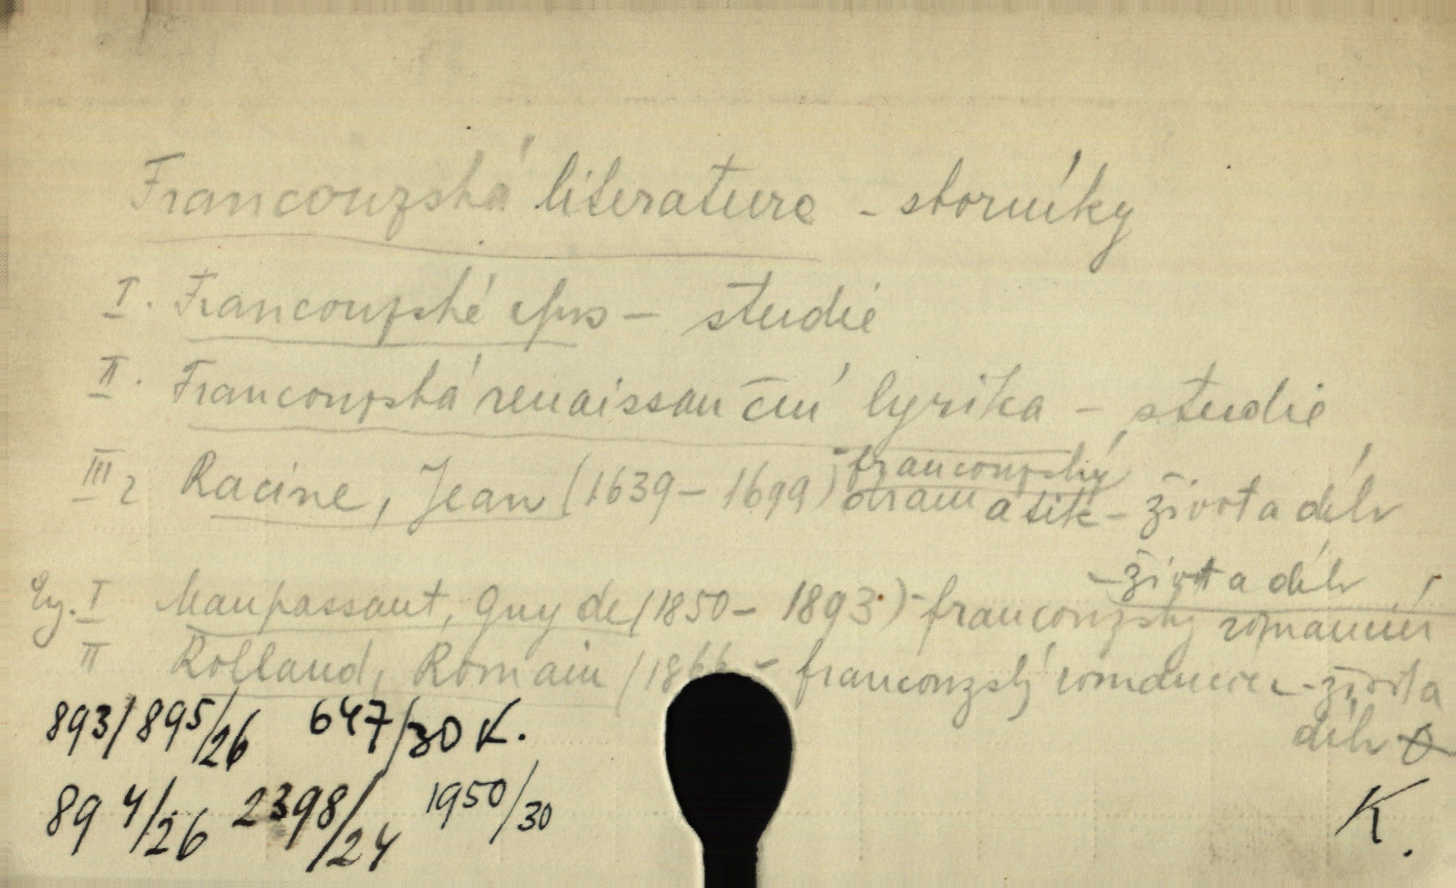 Francouzská literatura - sborníky
I. Francouzské epos - studie
II. Francouzská renaissanční lyrika - studie
III Racine, Jean (1639-1699) francouzský dramatik - život a dílo
I Maupassant, Guy de (1850-1893) - francouzský romanciér - život a dílo
II Rolland, Romain (1866- francouzský romancier - život a dílo
893/895/26 647/30 K.
894/26 2398/24 1950/30
K.